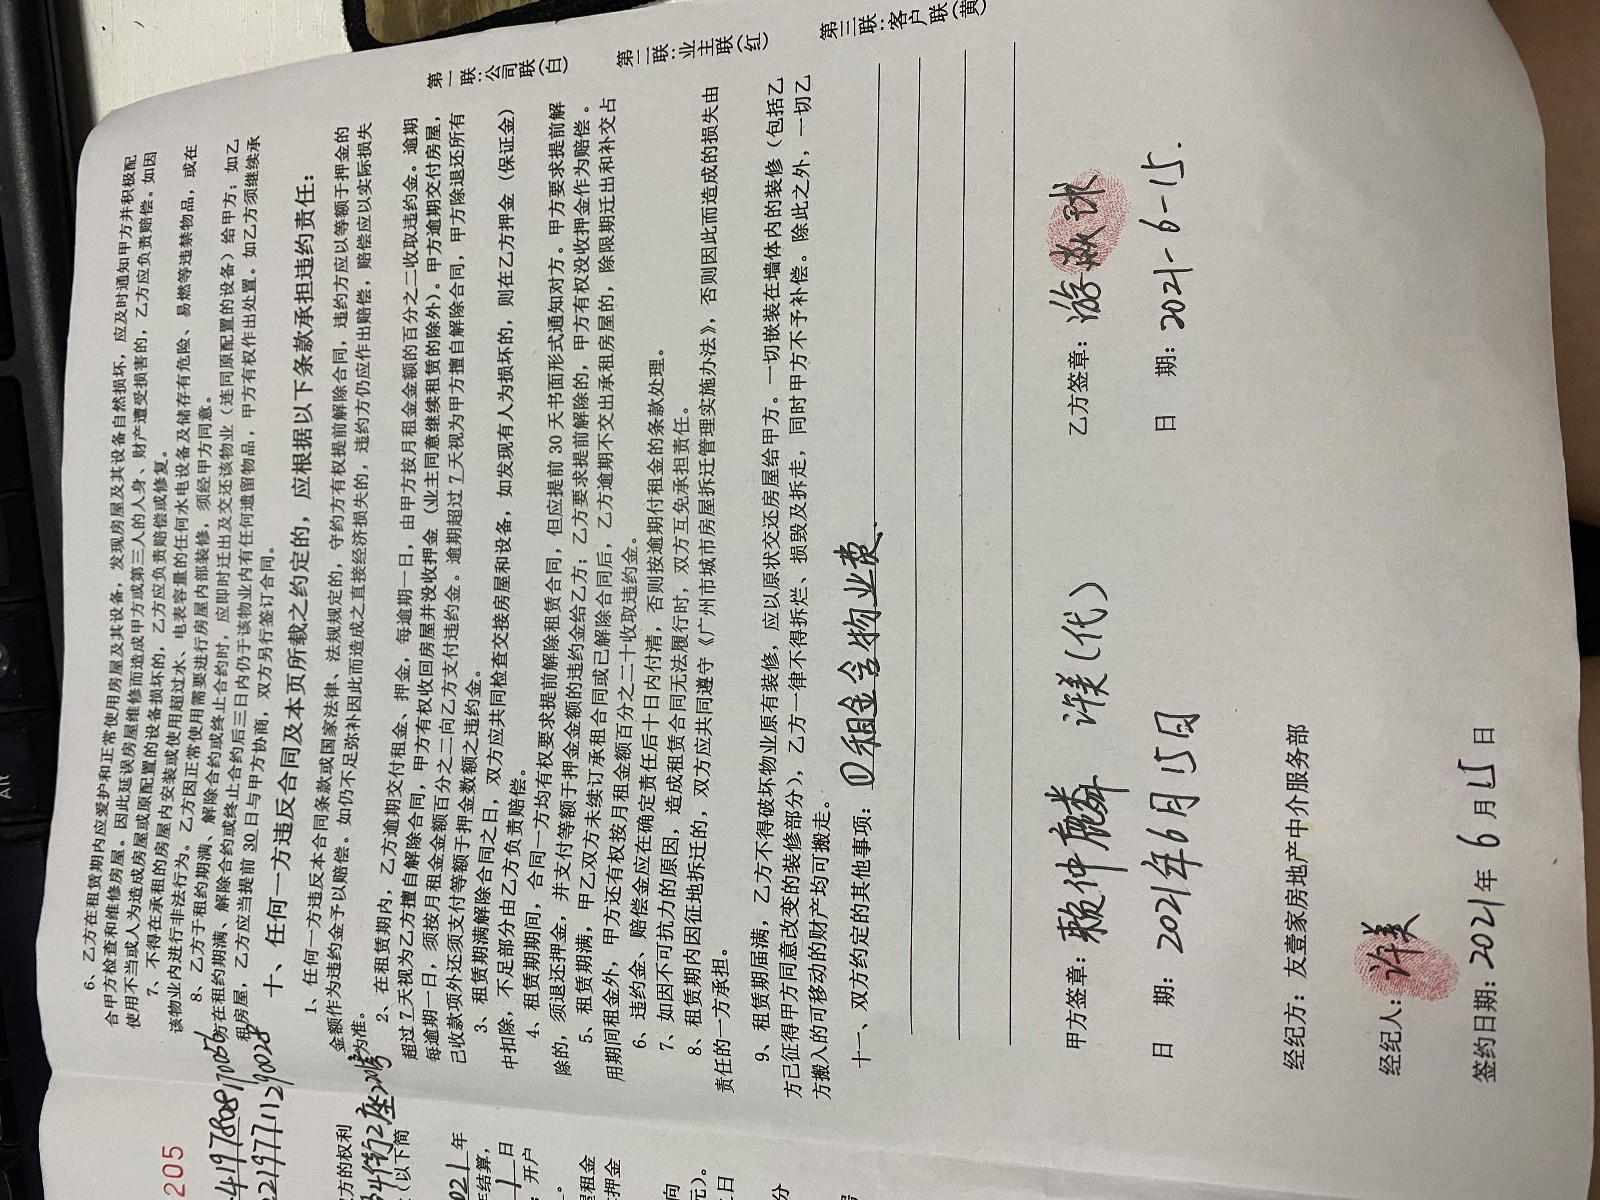 6、乙方在租赁期内应爱护和正常使用房屋及其设备，发现房屋及其设备自然损坏，应及时通知甲方并积极配
合甲方检查和维修房屋。因此延误房屋维修而造成甲方或第三人的人身、财产遭受损害的，乙方应负责赔偿。如因
使用不当或人为造成房屋或原配置的设备损坏的，乙方应负责赔偿或修复。
7、不得在承租的房屋内安装或使用超过水、电表容量的任何水电设备及储存有危险、易燃等违禁物品，或在
该物业内进行非法行为。乙方因正常使用需要进行房屋内部装修，须经甲方同意。
8、乙方于租约期满、解除合约或终止合约时，应即时迁出及交还该物业（连同原配置的设备）给甲方；如乙
方在租约期满、解除合约或终止合约后三日内仍于该物业内有任何遗留物品，甲方有权作出处置。如乙方须继续承
租房屋，乙方应当提前 30 日与甲方协商，双方另行签订合同。
十、任何一方违反合同及本页所载之约定的，应根据以下条款承担违约责任：
1、任何一方违反本合同条款或国家法律、法规规定的，守约方有权提前解除合同，违约方应以等额于押金的
金额作为违约金予以赔偿。如仍不足弥补因此而造成之直接经济损失的，违约方仍应作出赔偿，赔偿应以实际损失
为准。
2、在租赁期内，乙方逾期交付租金、押金，每逾期一日，由甲方按月租金金额的百分之二收取违约金。逾期
超过 7 天视为乙方擅自解除合同，甲方有权收回房屋并没收押金（业主同意继续租赁的除外）。甲方逾期交付房屋，
每逾期一日，须按月租金金额百分之二向乙方支付违约金。逾期超过 7 天视为甲方擅自解除合同，甲方除退还所有
已收款项外还须支付等额于押金数额之违约金。
3、租赁期满解除合同之日，双方应共同检查交接房屋和设备，如发现有人为损坏的，则在乙方押金（保证金）
中扣除，不足部分由乙方负责赔偿。
4、租赁期期间，合同一方均有权要求提前解除租赁合同，但应提前 30 天书面形式通知对方。甲方要求提前解
除的，须退还押金，并支付等额于押金金额的违约金给乙方；乙方要求提前解除的，甲方有权没收押金作为赔偿。
5、租赁期满，甲乙双方未续订承租合同或已解除合同后，乙方逾期不交出承租房屋的，除限期迁出和补交占
用期间租金外，甲方还有权按月租金额百分之二十收取违约金。
6、违约金、赔偿金应在确定责任后十日内付清，否则按逾期付租金的条款处理。
7、如因不可抗力的原因，造成租赁合同无法履行时，双方互免承担责任。
8、租赁期内因征地拆迁的，双方应共同遵守《广州市城市房屋拆迁管理实施办法》，否则因此而造成的损失由
责任的一方承担。
9、租赁期届满，乙方不得破坏物业原有装修，应以原状交还房屋给甲方。一切嵌装在墙体内的装修（包括乙
方已征得甲方同意改变的装修部分），乙方一律不得拆烂、损毁及拆走，同时甲方不予补偿。除此之外，一切乙
方搬入的可移动的财产均可搬走。
十一、双方约定的其他事项：①租金含物业费、
甲方签章：赖仲麟 许美(代)
日 期：2021年6月15日
乙方签章：游
日 期：2021-6-15.
经纪方：友壹家房地产中介服务部
经纪人：许美
签约日期：2021年 6 月 15 日
第一联：公司联（白）
第二联：业主联（红）
第三联：客户联（黄）
205
方的权利
34街2座
（以下简
021年
结算，
1日
开户
租金
押金
向
元）。
日
分
Alt